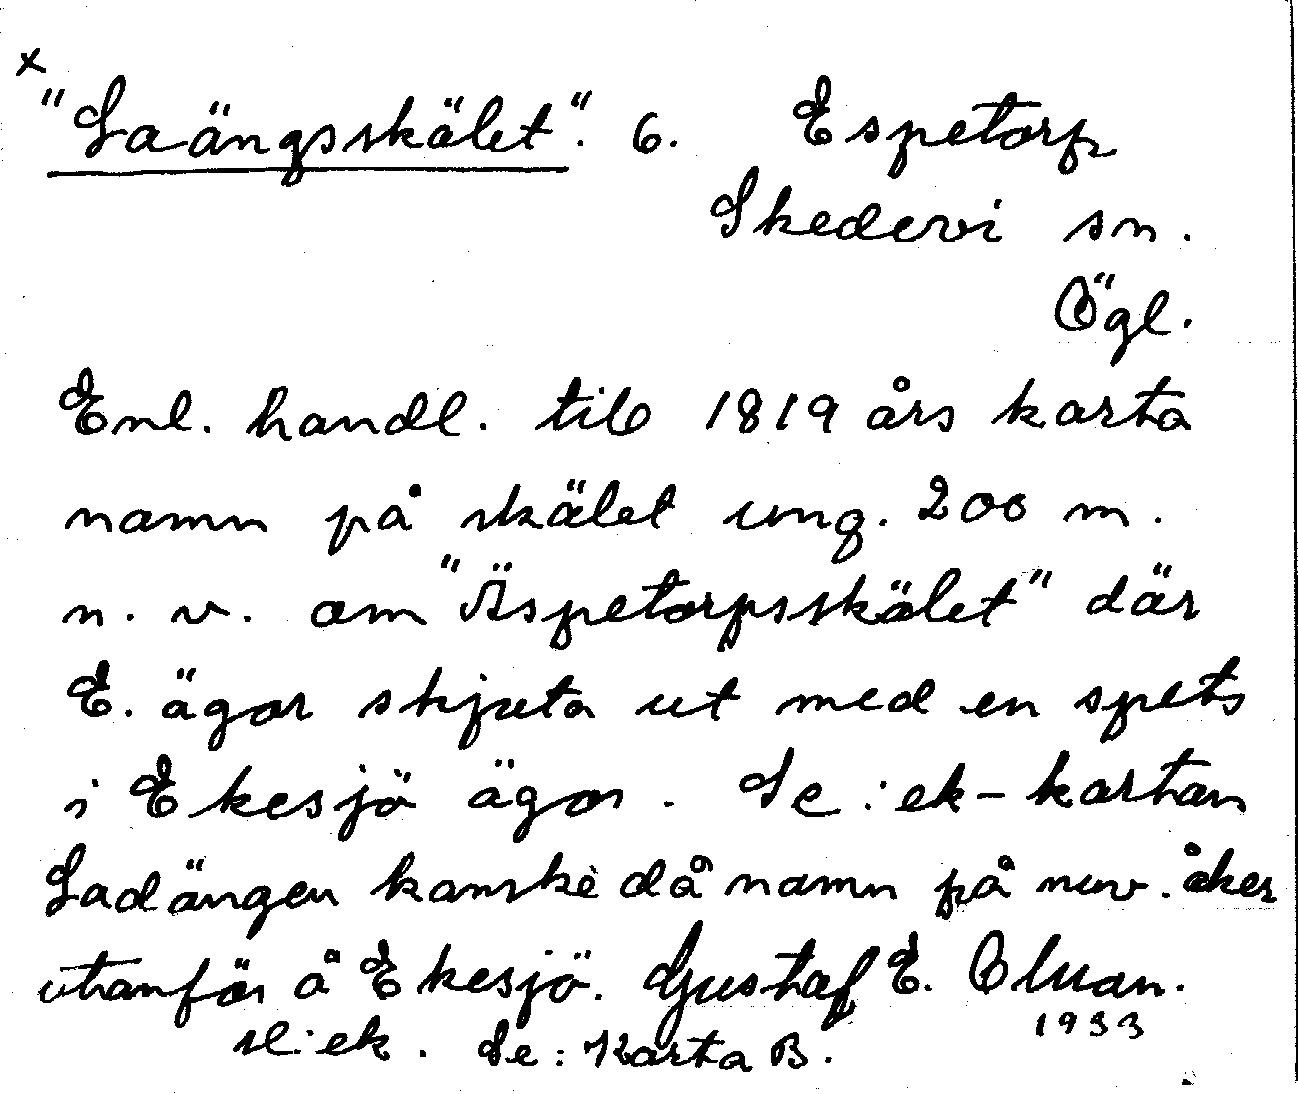 x
"Laängsskälet". 6. Espetorp
Skedevi sn.
Ögl.
Enl. handl. till 1819 års karta
namn på skälet ung. 200 m.
n. v. om "Äspetorpsskälet" där
E. ägor skjuta ut med en spets
i Ekesjö ägor. Se: ek-kartan
Ladängen kanske då namn på nuv. åker
utanför å Ekesjö. Gustaf E.
ek. Se: Karta B. 1933